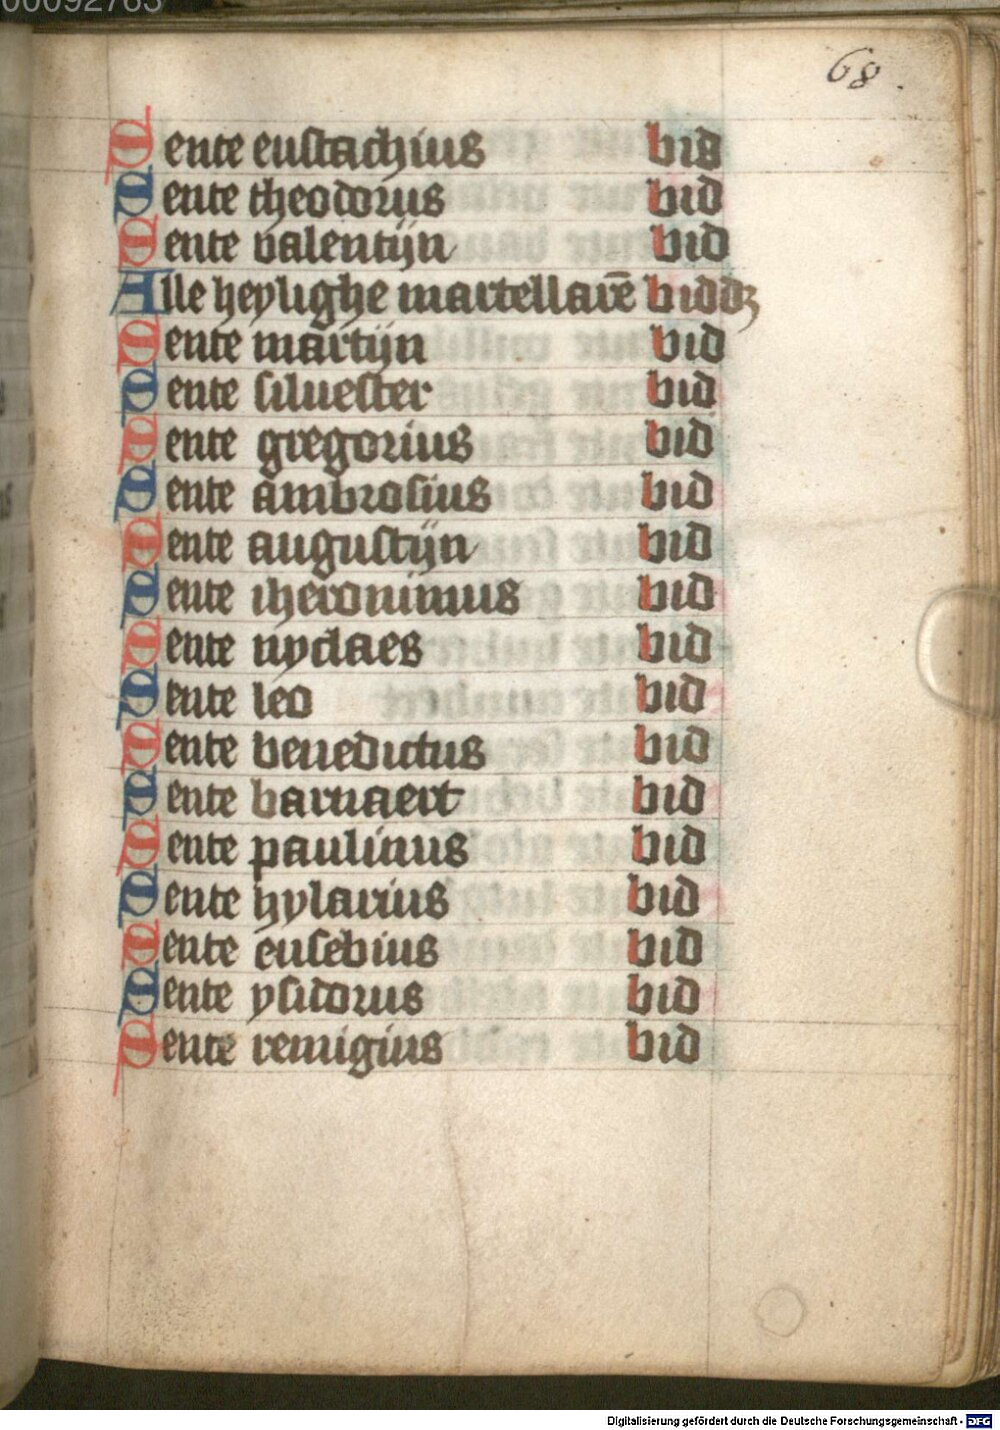 00092763
68.
Sente eustachius bid
Sente theodorus bid
Sente valentijn bid
Alle heylighe martellarē biddꝫ
Sente martijn bid
Sente siluester bid
Sente gregorius bid
Sente ambrosius bid
Sente augustijn bid
Sente iheronimus bid
Sente nyclaes bid
Sente leo bid
Sente benedictus bid
Sente barnaert bid
Sente paulinus bid
Sente hylarius bid
Sente eusebius bid
Sente ysidorus bid
Sente remigius bid
Digitalisierung gefördert durch die Deutsche Forschungsgemeinschaft - DFG